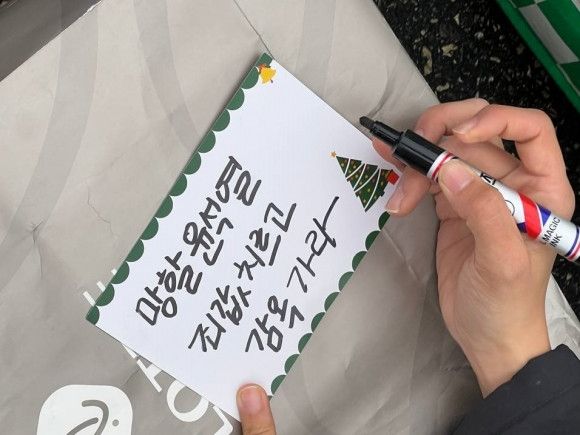 망할 윤석열
죄값 치르고
감옥 가라
MAGIC
INK